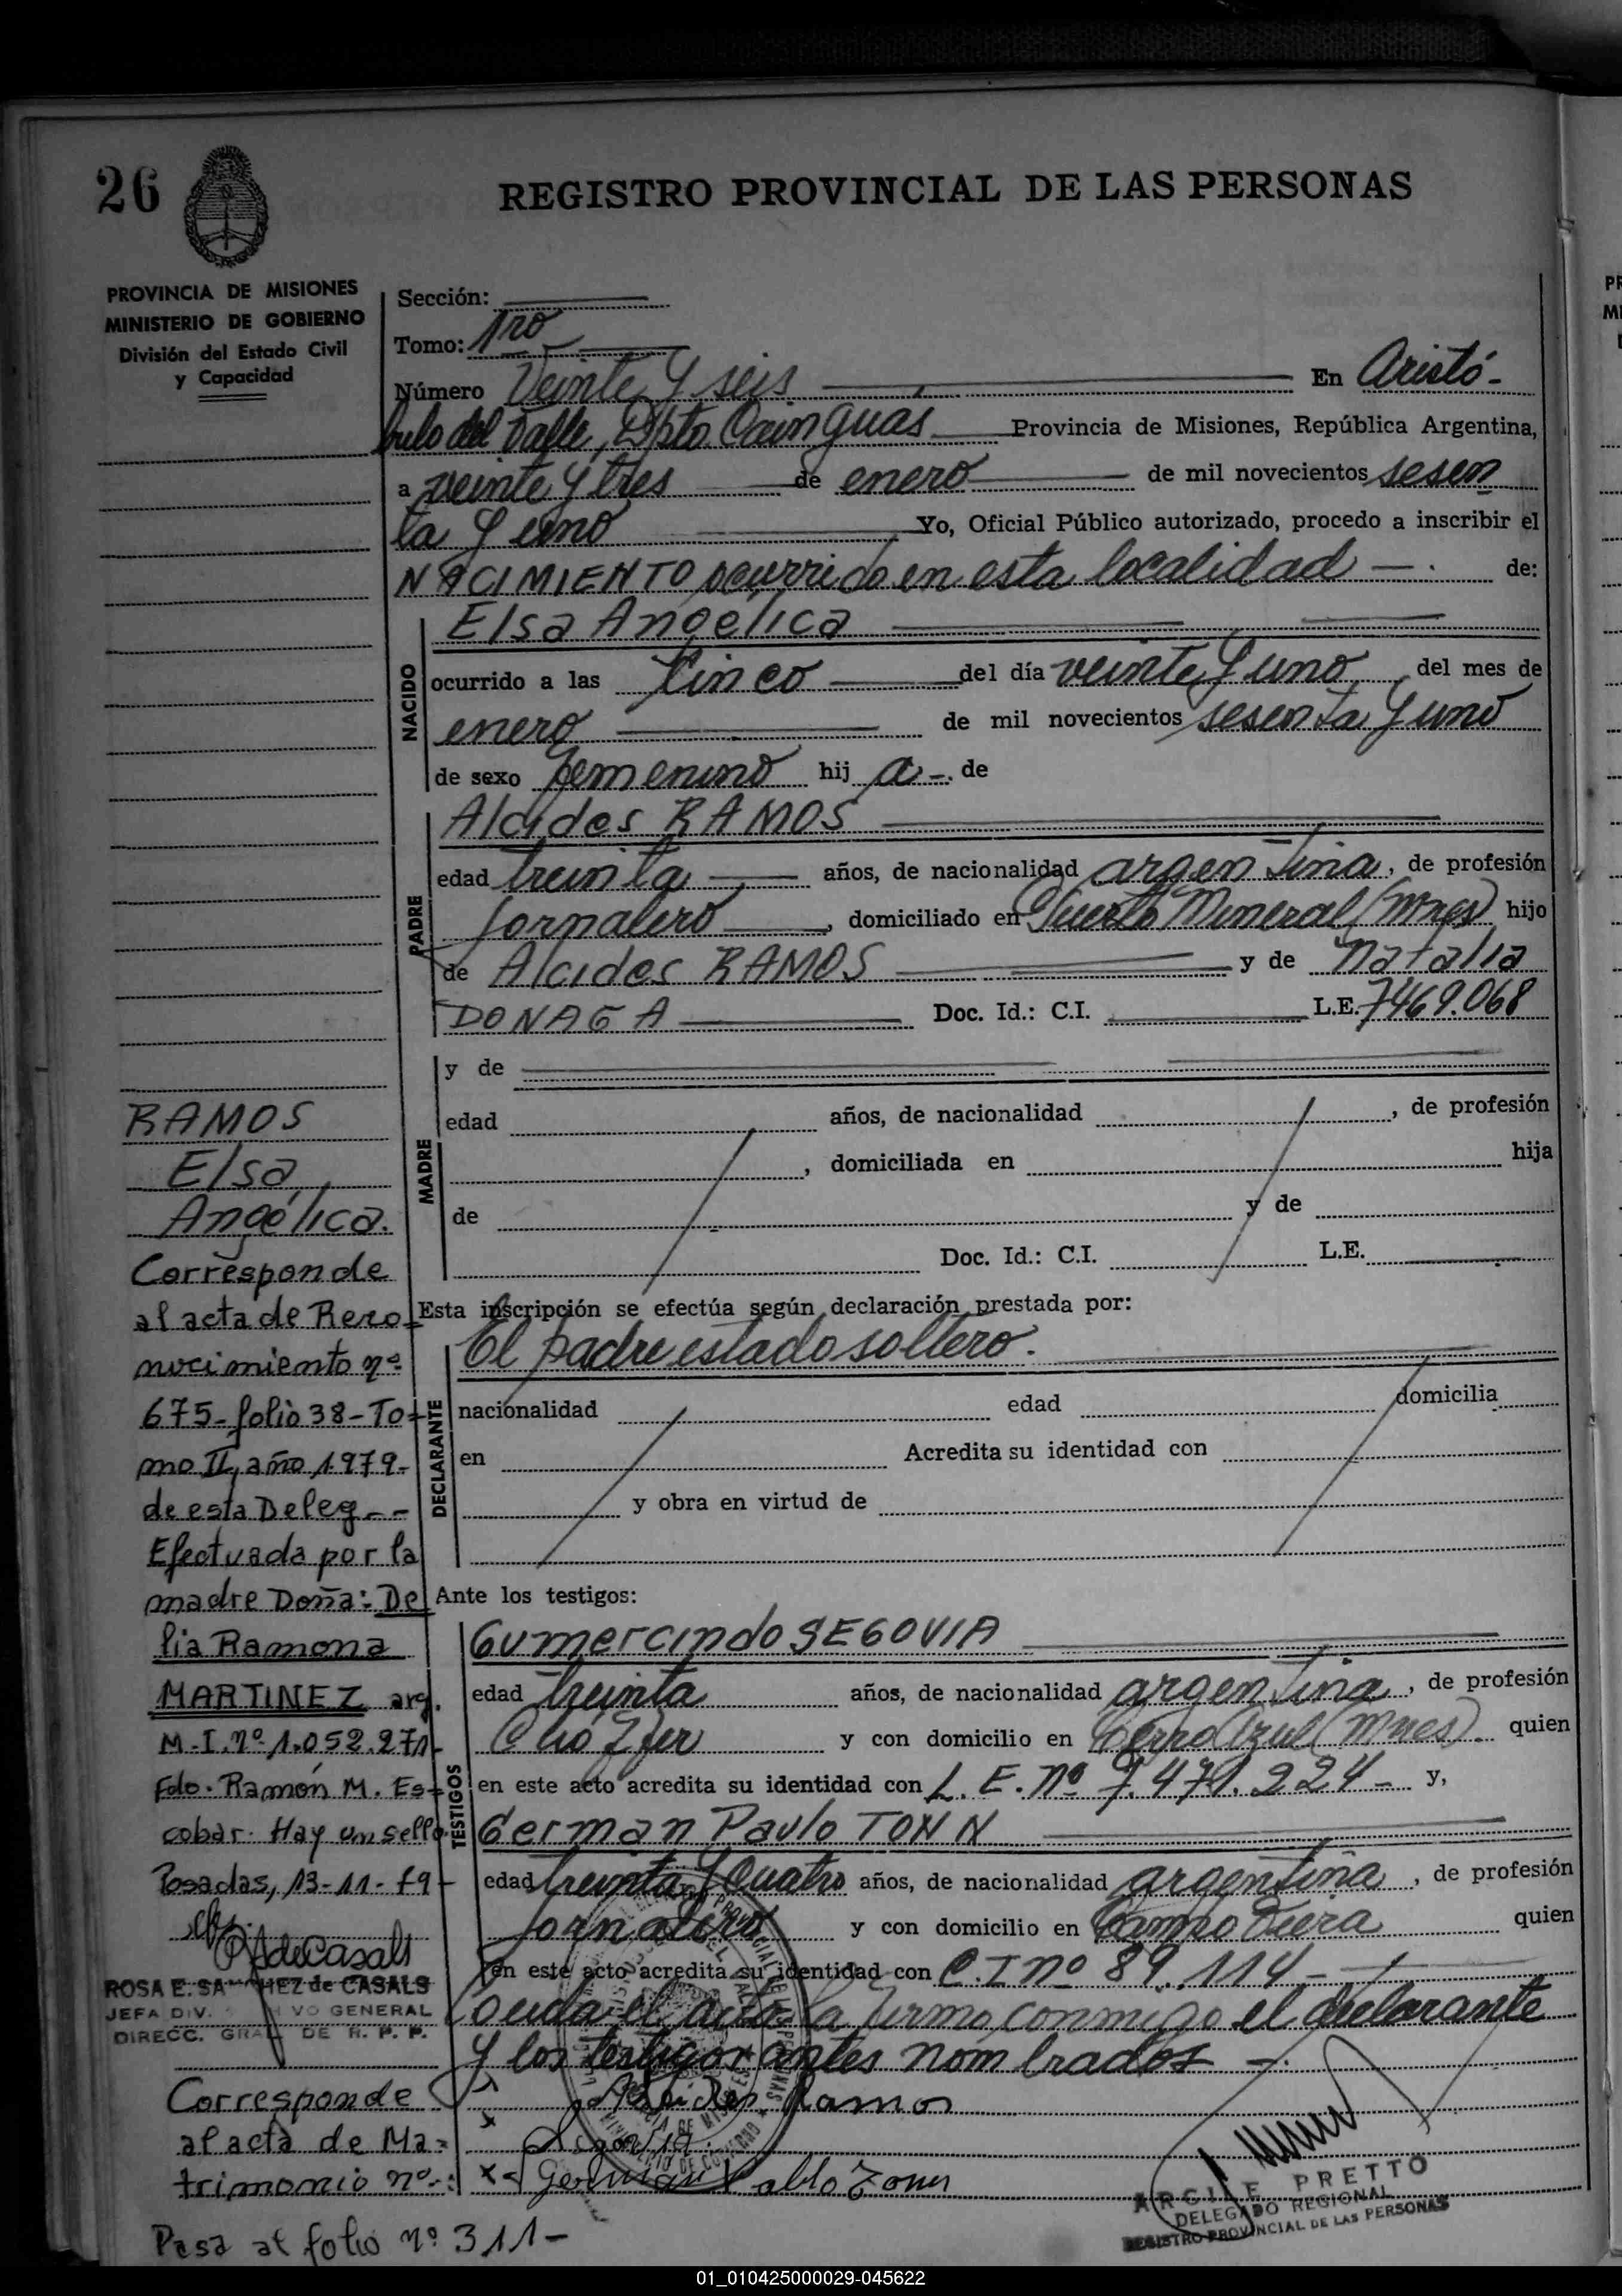 26
REGISTRO PROVINCIAL DE LAS PERSONAS
PROVINCIA DE MISIONES
MINISTERIO DE GOBIERNO
División del Estado Civil
y Capacidad
Sección:
Tomo: 1ro
Número Veinte y seis En Aristó-
bulo del Valle, Dpto Cainguas Provincia de Misiones, República Argentina,
a veinte y tres de enero de mil novecientos sesen
ta y uno Yo, Oficial Público autorizado, procedo a inscribir el
NACIMIENTO ocurrido en esta localidad — . de:
NACIDO
Elsa Angélica
ocurrido a las Cinco del día veinte y uno del mes de
enero de mil novecientos sesenta y uno
de sexo femenino hij a -. de
PADRE
Alcides RAMOS
edad treinta años, de nacionalidad argentina, de profesión
Jornalero, domiciliado en Puerto Mineral (Mnes) hijo
de Alcides RAMOS y de Natalia
DONAGA Doc. Id.: C.I. L.E. 7469.068
MADRE
y de
edad años, de nacionalidad , de profesión
, domiciliada en hija
de y de
Doc. Id.: C.I. L.E.
Esta inscripción se efectúa según declaración prestada por:
DECLARANTE
El padre estado soltero.
nacionalidad edad domicilia
en Acredita su identidad con
y obra en virtud de
Ante los testigos:
TESTIGOS
Gumercindo SEGOVIA
edad treinta años, de nacionalidad argentina, de profesión
Chóffer y con domicilio en Cerro Azul (Mnes). quien
en este acto acredita su identidad con L. E. nº 7.471.224 - y,
German Paulo TONN
edad treinta y Cuatro años, de nacionalidad argentina, de profesión
Jornalero y con domicilio en Campo Viera quien
en este acto acredita su identidad con C.I nº 89.114 -
Leída el acta la firma conmigo el declarante
y los testigos antes nombrados -.
Alcides Ramos
Segovia
German Pablo Tonn
ARGI E PRETTO
DELEGADO REGIONAL
REGISTRO PROVINCIAL DE LAS PERSONAS
RAMOS
Elsa
Angélica.
Corresponde
al acta de Reco-
nocimiento nº
675-folio 38-To-
mo II, año 1979-
de esta Deleg.--
Efectuada por la
madre Doña: De
lia Ramona
MARTINEZ arg.
M.I. nº 1.052.271-
Fdo. Ramón M. Es-
cobar. Hay un sello.
Posadas, 13-11-79-
RdeCasals
ROSA E. SA HEZ de CASALS
JEFA DIV. VO GENERAL
DIRECC. GRAL DE R. P. P.
Corresponde
al acta de Ma=
trimonio nº-:
Pasa al folio nº 311-
01_010425000029-045622